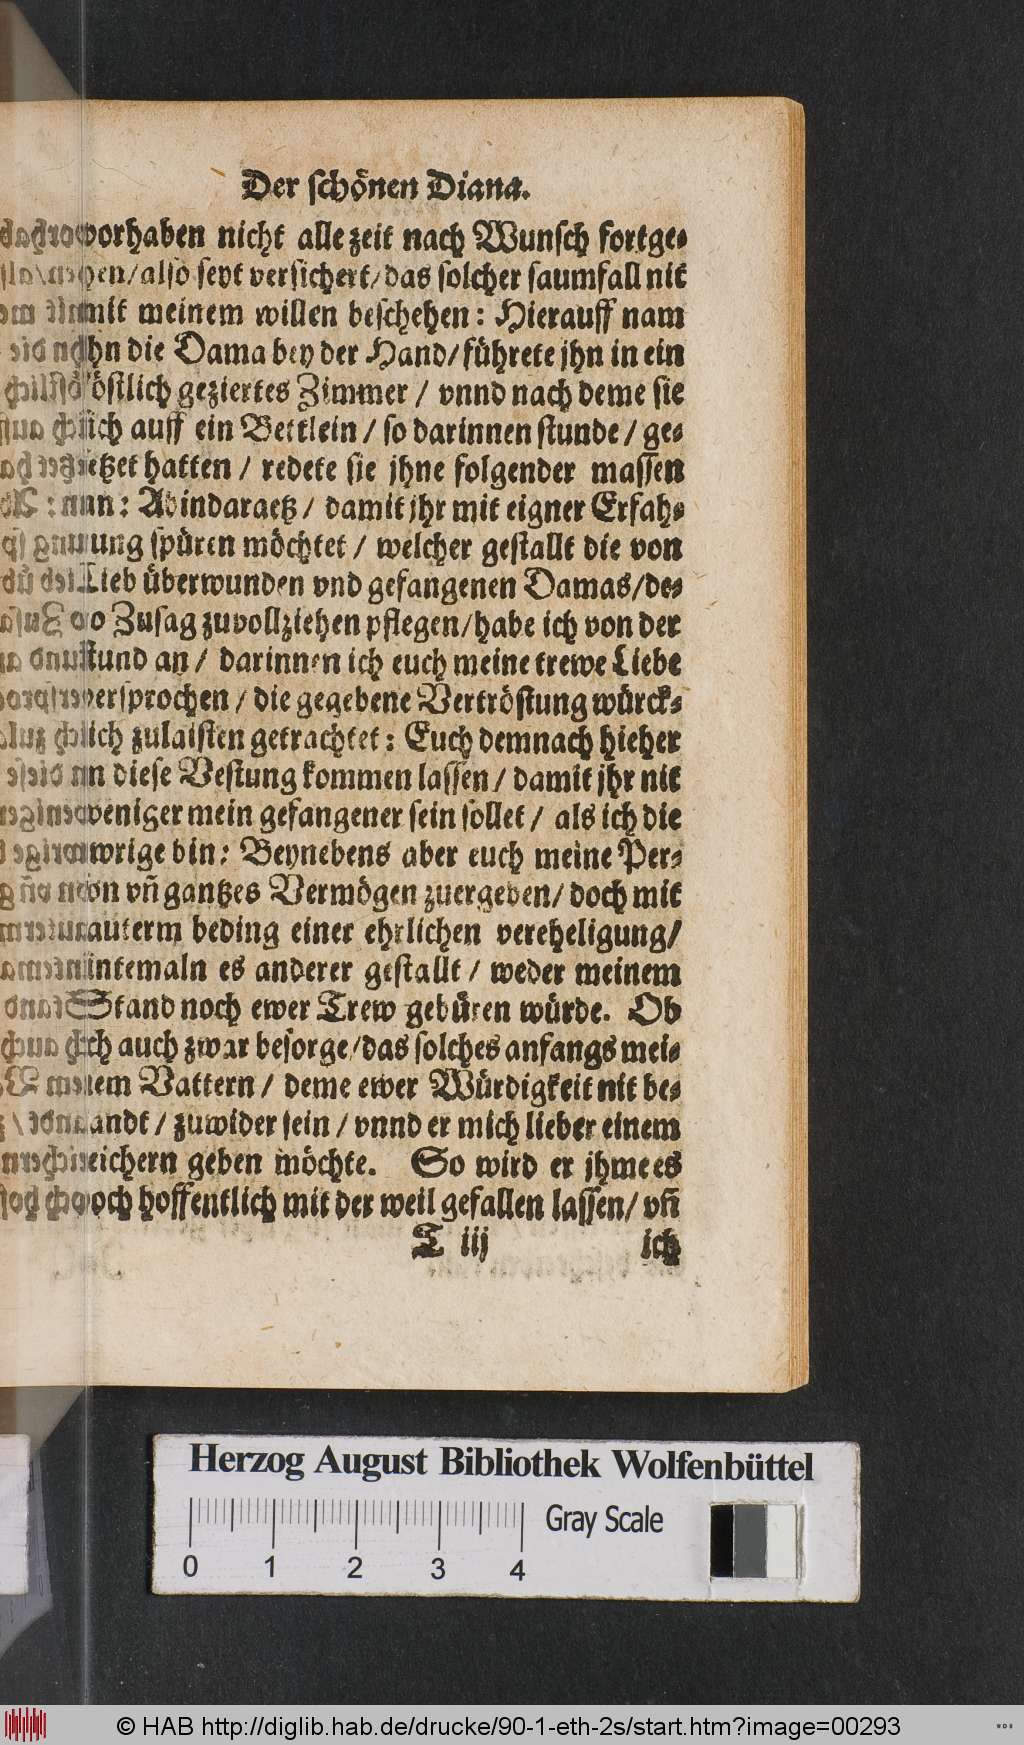 Der schönen Diana.
vorhaben nicht alle zeit nach Wunsch fortge-
hen / also seyt versichert / das solcher saumfall nit
mit meinem willen beschehen: Hierauff nam
jhn die Dama bey der Hand / führete jhn in ein
köstlich geziertes Zimmer / vnnd nach deme sie
sich auff ein Bettlein / so darinnen stunde / ge-
setzet hatten / redete sie jhne folgender massen
an: Abindaraetz / damit jhr mit eigner Erfah-
rung spüren möchtet / welcher gestallt die von
Lieb überwunden vnd gefangenen Damas / de-
ro Zusag zuvollziehen pflegen / habe ich von der
stund an / darinnen ich euch meine trewe Liebe
versprochen / die gegebene Vertröstung würck-
lich zulaisten getrachtet: Euch demnach hieher
in diese Vestung kommen lassen / damit jhr nit
weniger mein gefangener sein sollet / als ich die
ewrige bin: Beynebens aber euch meine Per-
son vñ gantzes Vermögen zuergeben / doch mit
lauterm beding einer ehrlichen vereheligung /
sintemaln es anderer gestallt / weder meinem
Stand noch ewer Trew gebüren würde. Ob
ich auch zwar besorge / das solches anfangs mei-
nem Vattern / deme ewer Würdigkeit nit be-
kandt / zuwider sein / vnnd er mich lieber einem
reichern geben möchte. So wird er jhme es
doch hoffentlich mit der weil gefallen lassen / vñ
T iij ich
Herzog August Bibliothek Wolfenbüttel
0 1 2 3 4 Gray Scale
© HAB http://diglib.hab.de/drucke/90-1-eth-2s/start.htm?image=00293